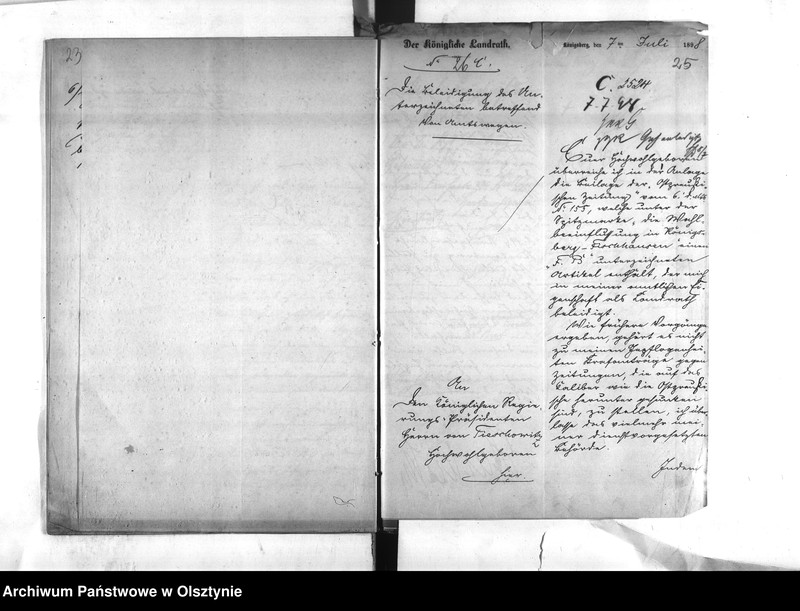 23
Der Königliche Landrath.
Königsberg, den 7ten Juli 1898
N 26 C.
25
Die Beleidigung des Un-
terzeichneten betreffend
Von Amtswegen.
C. 2524
7.7.98
Euer Hochwohlgeboren
überreiche ich in der Anlage
die Beilage der "Ostpreußi-
schen Zeitung" vom 6. d. Mts
N. 155, welche unter der
Spitzmarke "die Wahl-
beeinflußung in Königs-
berg-Fischhausen" einen
unterzeichneten
Artikel enthält, der mich
in meiner amtlichen Ei-
genschaft als Landrath
beleidigt.
Wie frühere Vorgänge
ergeben, gehört es nicht
zu meinen
ten Strafanträge gegen
Zeitungen, die auf das
Caliber wie die Ostpreußi-
sche herunter gesunken
sind, zu stellen, ich über-
lasse das vielmehr mei-
ner dienstvorgesetzten
Behörde.
Indem
An
den Königlichen Regie-
rungs-Präsidenten
Herrn von Tieschowitz
Hochwohlgeboren
hier.
Archiwum Państwowe w Olsztynie